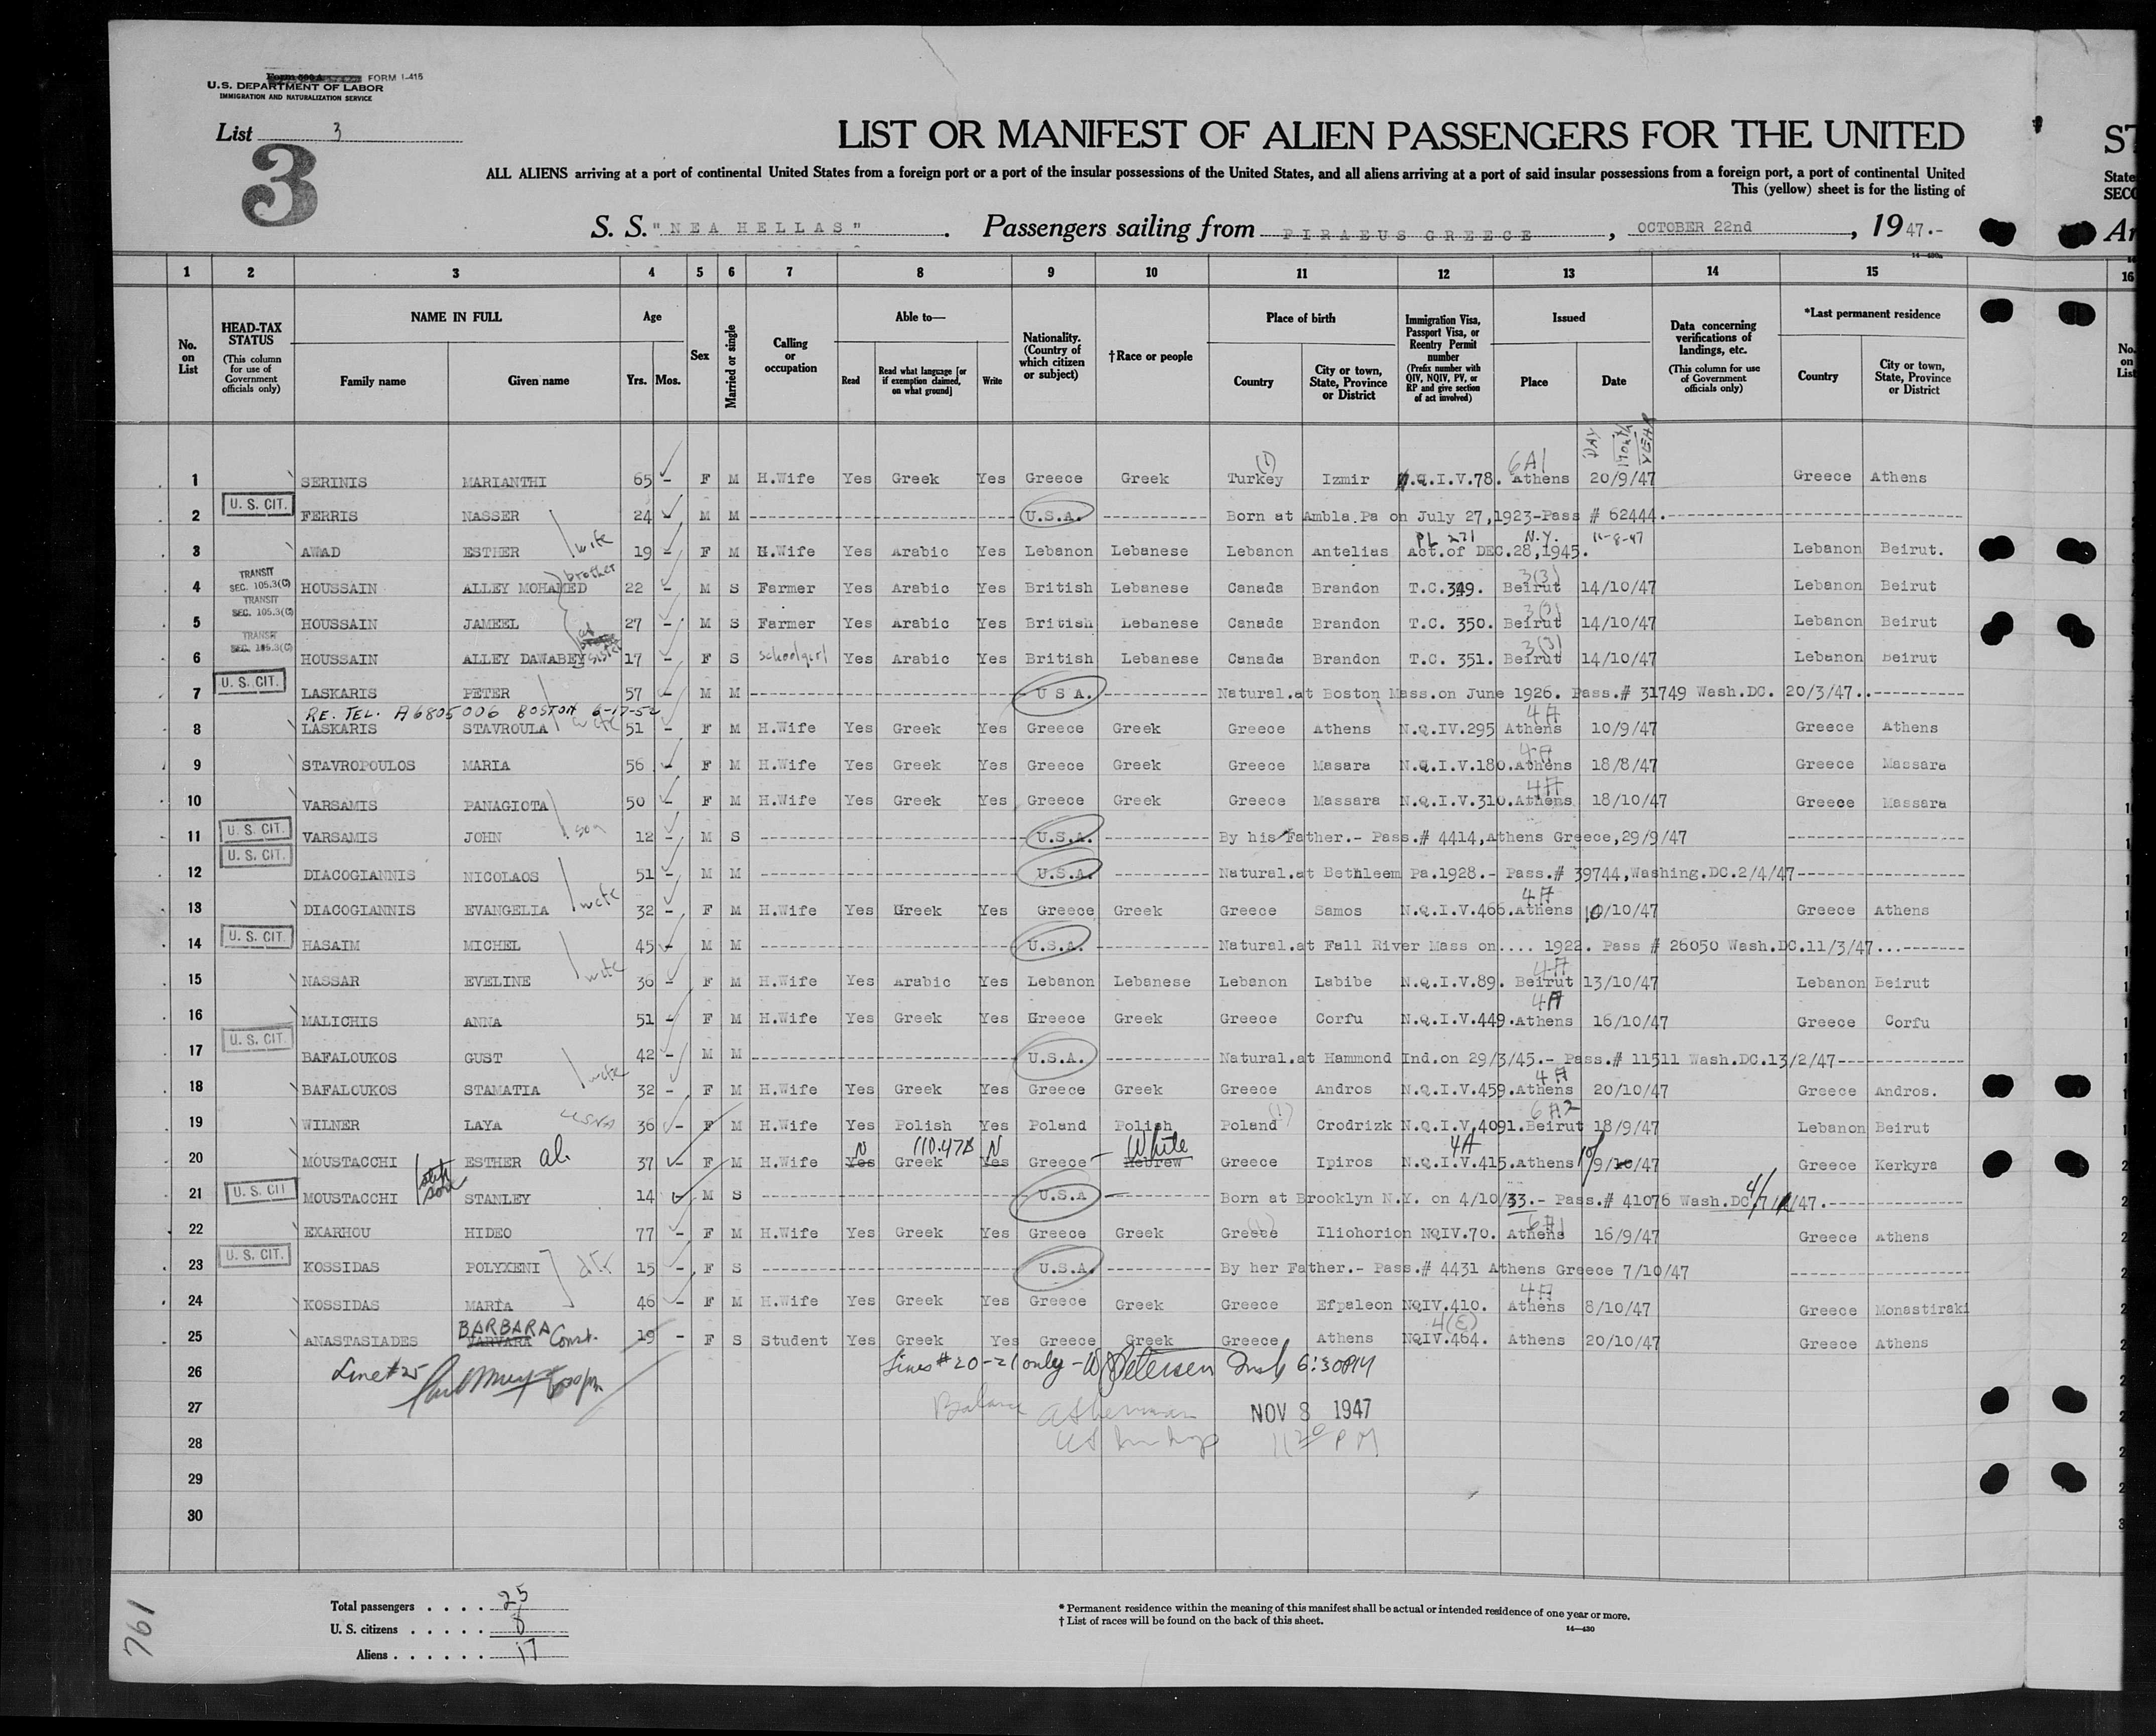 Form 500 A FORM I-415
U.S. DEPARTMENT OF LABOR
IMMIGRATION AND NATURALIZATION SERVICE
List 3
3
LIST OR MANIFEST OF ALIEN PASSENGERS FOR THE UNITED
ST
ALL ALIENS arriving at a port of continental United States from a foreign port or a port of the insular possessions of the United States, and all aliens arriving at a port of said insular possessions from a foreign port, a port of continental United
State
This (yellow) sheet is for the listing of
SECO
S. S. "NEA HELLAS". Passengers sailing from PIRAEUS GREECE, OCTOBER 22nd, 1947.-
Ar
14—430a
1 2 3 4 5 6 7 8 9 10 11 12 13 14 15 16
No. on List
HEAD-TAX STATUS (This column for use of Government officials only)
NAME IN FULL Family name Given name
Age Yrs. Mos.
Sex
Married or single
Calling or occupation
Able to— Read Read what language [or if exemption claimed, on what ground] Write
Nationality. (Country of which citizen or subject)
†Race or people
Place of birth Country City or town, State, Province or District
Immigration Visa, Passport Visa, or Reentry Permit number (Prefix number with QIV, NQIV, PV, or RP and give section of act involved)
Issued Place Date
DAY Month YEAR
Data concerning verifications of landings, etc. (This column for use of Government officials only)
*Last permanent residence Country City or town, State, Province or District
No. on List
(1) 6A1
1 SERINIS MARIANTHI 65 - F M H.Wife Yes Greek Yes Greece Greek Turkey Izmir N.Q.I.V.78. Athens 20/9/47 Greece Athens
2 U. S. CIT. FERRIS NASSER 24 M M U.S.A. Born at Ambla.Pa on July 27,1923-Pass # 62444.
wife PL 271 N.Y. 11-8-47
3 AWAD ESTHER 19 - F M H.Wife Yes Arabic Yes Lebanon Lebanese Lebanon Antelias Act.of DEC.28,1945. Lebanon Beirut.
TRANSIT SEC. 105.3(C) brother 3(3)
4 HOUSSAIN ALLEY MOHAMED 22 - M S Farmer Yes Arabic Yes British Lebanese Canada Brandon T.C.349. Beirut 14/10/47 Lebanon Beirut
TRANSIT SEC. 105.3(C) 3(3)
5 HOUSSAIN JAMEEL 27 - M S Farmer Yes Arabic Yes British Lebanese Canada Brandon T.C. 350. Beirut 14/10/47 Lebanon Beirut
TRANSIT SEC. 105.3(C) sister 3(3)
6 HOUSSAIN ALLEY DAWABEY 17 - F S schoolgirl Yes Arabic Yes British Lebanese Canada Brandon T.C. 351. Beirut 14/10/47 Lebanon Beirut
7 U. S. CIT. LASKARIS PETER 57 - M M U S A. Natural.at Boston Mass.on June 1926. Pass.# 31749 Wash.DC. 20/3/47.
RE. TEL. A6805006 BOSTON 6-17-52 4A
8 LASKARIS STAVROULA wife 51 - F M H.Wife Yes Greek Yes Greece Greek Greece Athens N.Q.IV.295 Athens 10/9/47 Greece Athens
4A
9 STAVROPOULOS MARIA 56 - F M H.Wife Yes Greek Yes Greece Greek Greece Masara N.Q.I.V.180.Athens 18/8/47 Greece Massara
4A
10 VARSAMIS PANAGIOTA 50 - F M H.Wife Yes Greek Yes Greece Greek Greece Massara N.Q.I.V.310.Athens 18/10/47 Greece Massara
11 U. S. CIT. VARSAMIS JOHN son 12 - M S U.S.A. By his Father.- Pass.# 4414,Athens Greece,29/9/47
12 U. S. CIT. DIACOGIANNIS NICOLAOS 51 - M M U.S.A. Natural.at Bethleem Pa.1928.- Pass.# 39744,Washing.DC.2/4/47
4A
13 DIACOGIANNIS EVANGELIA wife 32 - F M H.Wife Yes Greek Yes Greece Greek Greece Samos N.Q.I.V.466.Athens 10/10/47 Greece Athens
14 U. S. CIT. HASAIM MICHEL 45 - M M U.S.A. Natural.at Fall River Mass on.... 1922. Pass # 26050 Wash.DC.11/3/47...
4A
15 NASSAR EVELINE wife 36 - F M H.Wife Yes Arabic Yes Lebanon Lebanese Lebanon Labibe N.Q.I.V.89. Beirut 13/10/47 Lebanon Beirut
4A
16 MALICHIS ANNA 51 - F M H.Wife Yes Greek Yes Greece Greek Greece Corfu N.Q.I.V.449.Athens 16/10/47 Greece Corfu
17 U. S. CIT. BAFALOUKOS GUST 42 - M M U.S.A. Natural.at Hammond Ind.on 29/3/45.- Pass.# 11511 Wash.DC.13/2/47
4A
18 BAFALOUKOS STAMATIA wife 32 - F M H.Wife Yes Greek Yes Greece Greek Greece Andros N.Q.I.V.459.Athens 20/10/47 Greece Andros.
(1) 6A2
19 WILNER LAYA 36 - F M H.Wife Yes Polish Yes Poland Polish Poland Crodrizk N.Q.I.V.4091.Beirut 18/9/47 Lebanon Beirut
N N White 4A
20 MOUSTACCHI ESTHER al. 37 F M H.Wife Yes Greek Yes Greece Hebrew Greece Ipiros N.Q.I.V.415.Athens 9/10/47 Greece Kerkyra
21 U. S. CIT MOUSTACCHI son STANLEY 14 M S U.S.A Born at Brooklyn N.Y. on 4/10/33.- Pass.# 41076 Wash.DC 4/7/47.
6A1
22 EXARHOU HIDEO 77 - F M H.Wife Yes Greek Yes Greece Greek Greece Iliohorion NQIV.70. Athens 16/9/47 Greece Athens
23 U. S. CIT. KOSSIDAS POLYXENI 15 - F S U.S.A. By her Father.- Pass.# 4431 Athens Greece 7/10/47
4A
24 KOSSIDAS MARIA 46 - F M H.Wife Yes Greek Yes Greece Greek Greece Efpaleon NQIV.410. Athens 8/10/47 Greece Monastiraki
BARBARA 4(E)
25 ANASTASIADES VARVARA Const. 19 - F S Student Yes Greek Yes Greece Greek Greece Athens NQIV.464. Athens 20/10/47 Greece Athens
26 Line #25 Lines #20-21 only - Petersen Insp 6:30PM
27 Balance NOV 8 1947
28 11 20 PM
29
30
Total passengers . . . . 25
U. S. citizens . . . . . 8
Aliens . . . . . . 17
* Permanent residence within the meaning of this manifest shall be actual or intended residence of one year or more.
† List of races will be found on the back of this sheet.
14—430
761